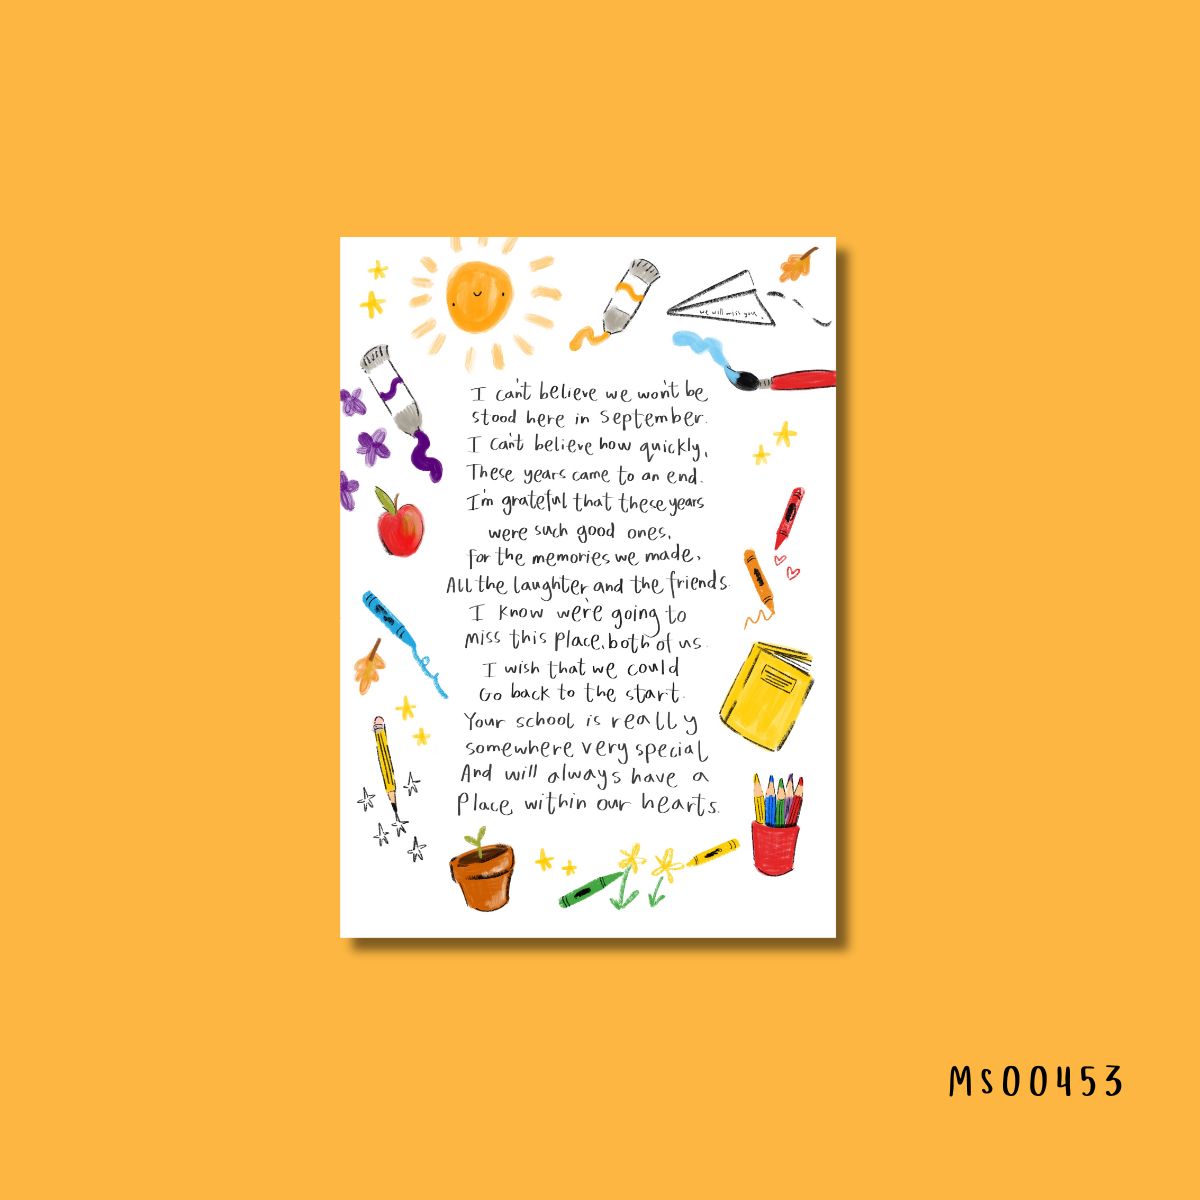 we will miss you.
I can't believe we won't be
stood here in September.
I can't believe how quickly,
These years came to an end.
I'm grateful that these years
were such good ones,
for the memories we made,
All the laughter and the friends.
I know we're going to
miss this place, both of us.
I wish that we could
Go back to the start.
Your school is really
somewhere very special
And will always have a
Place within our hearts.
MS00453